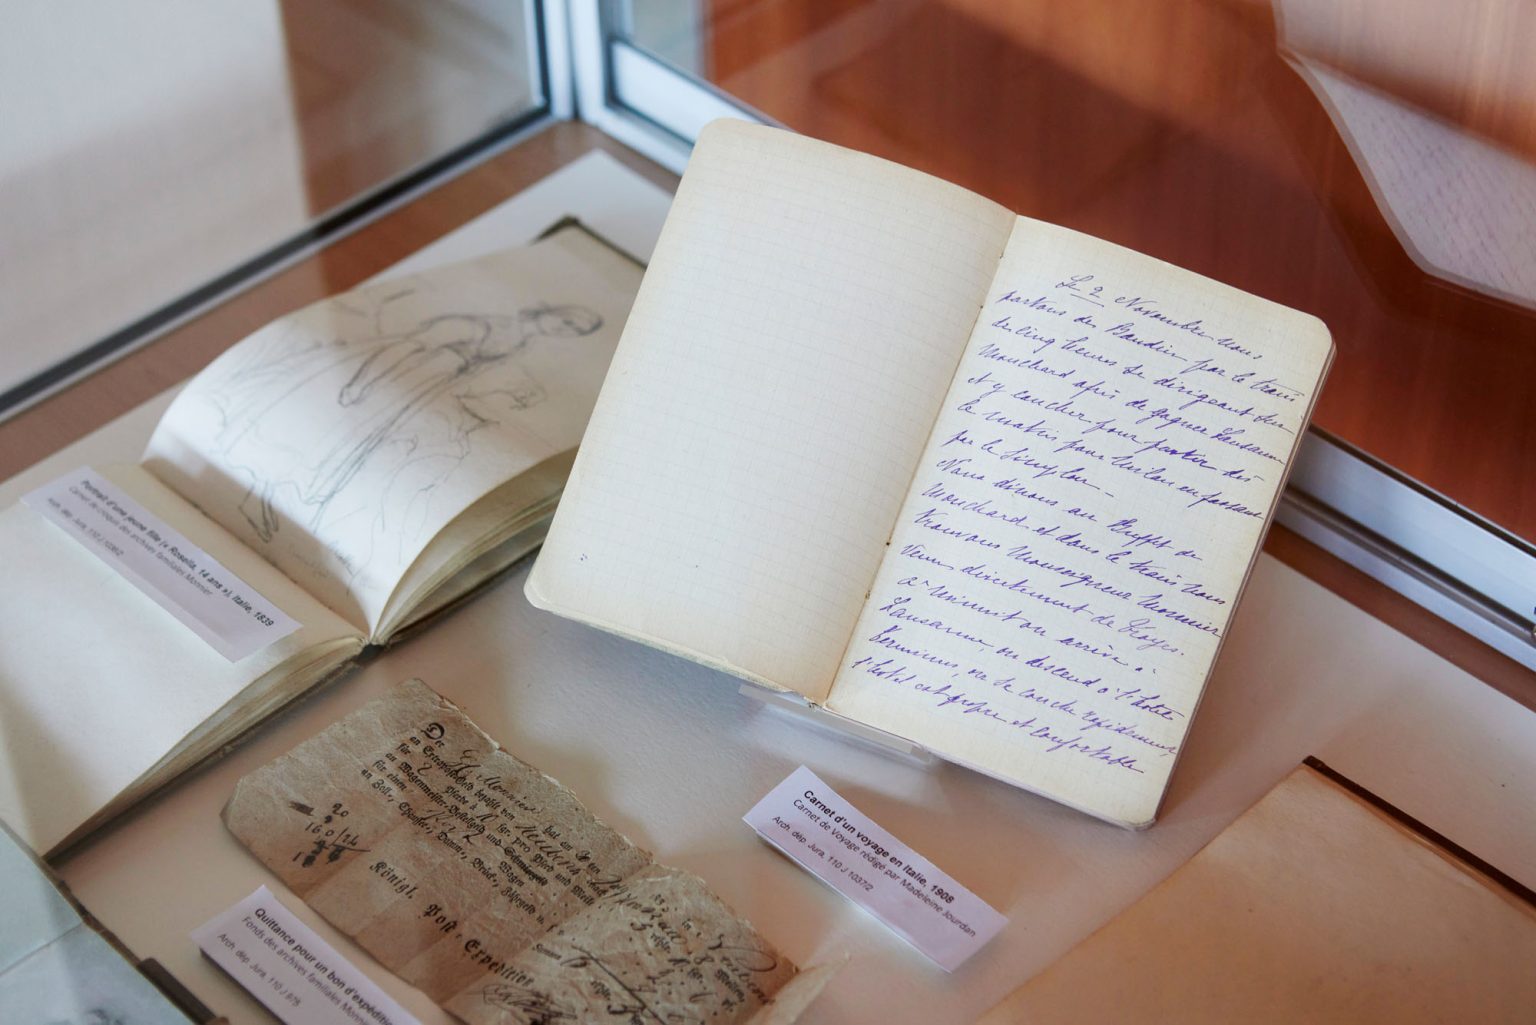 Le 2 Novembre nous
partons de Baudin par le train
de cinq heures se dirigeant sur
Mouchard afin de gagner Lausanne
et y coucher pour partir dès
le matin pour Milan en passant
par le Simplon.
Nous dînons au Buffet de
Mouchard et dans le train nous
trouvons Monseigneur Monnier
venu directement de Troyes.
à minuit on arrive à
Lausanne, on descend à l'hôtel
Terminus, on se couche rapidement,
l'hôtel est propre et confortable
Portrait d'une jeune fille (« Rosella, 14 ans »), Italie, 1839
Carnet de croquis des archives familiales Monnier
Arch. dép. Jura, 110 J
Carnet d'un voyage en Italie, 1908
Carnet de Voyage rédigé par Madeleine Jourdan
Arch. dép. Jura, 110 J 1037/2
Der Monnier hat
an Extrapostgeld bezahlt von
für 2 Pferde à gr. pro Pferd und Meile
an Wagenmeister-Bestellgeld und
für einen Wagen
an Zoll, Chaussee, Damm, Brück,
20
160
Königl. Post-Expedition
Quittance pour un bon d'expédition
Fonds des archives familiales Monnier
Arch. dép. Jura, 110 J 975